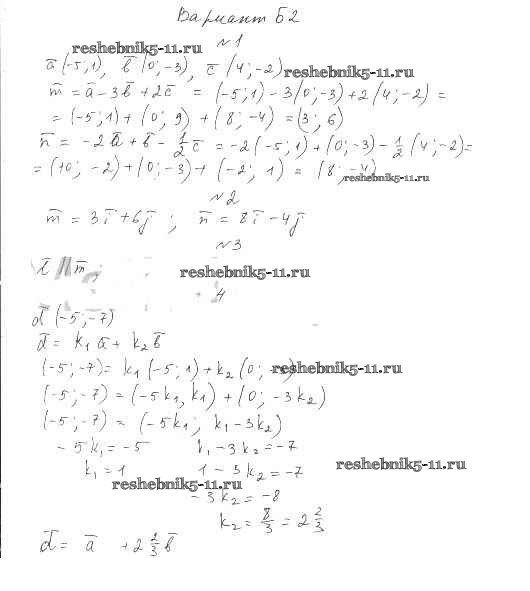 Вариант Б2
№1
reshebnik5-11.ru
a̅(-5;1), b̅(0;-3), c̅(4;-2)
reshebnik5-11.ru
m̅ = a̅ - 3b̅ + 2c̅ = (-5;1) - 3(0;-3) + 2(4;-2) =
= (-5;1) + (0;9) + (8;-4) = (3;6)
n̅ = -2a̅ + b̅ - 1/2 c̅ = -2(-5;1) + (0;-3) - 1/2 (4;-2) =
= (10;-2) + (0;-3) + (-2;1) = (8;-4)
reshebnik5-11.ru
№2
m̅ = 3i̅ + 6j̅; n̅ = 8i̅ - 4j̅
№3
reshebnik5-11.ru
m̅;
4
d̅(-5;-7)
d̅ = k₁a̅ + k₂b̅
(-5;-7) = k₁(-5;1) + k₂(0;
reshebnik5-11.ru
(-5;-7) = (-5k₁, k₁) + (0;-3k₂)
(-5;-7) = (-5k₁; k₁-3k₂)
-5k₁ = -5 k₁-3k₂ = -7
k₁ = 1 1-3k₂ = -7
reshebnik5-11.ru
reshebnik5-11.ru
-3k₂ = -8
k₂ = 8/3 = 2 2/3
d̅ = a̅ + 2 2/3 b̅